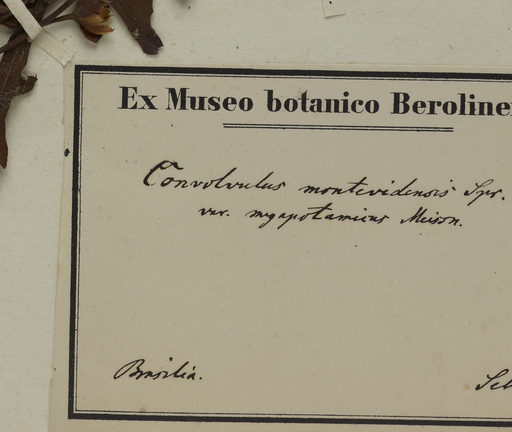 Ex Museo botanico Beroline
Convolvulus montevidensis Spr.
var. mygapotamicus Meison.
Brasilia.
Sel